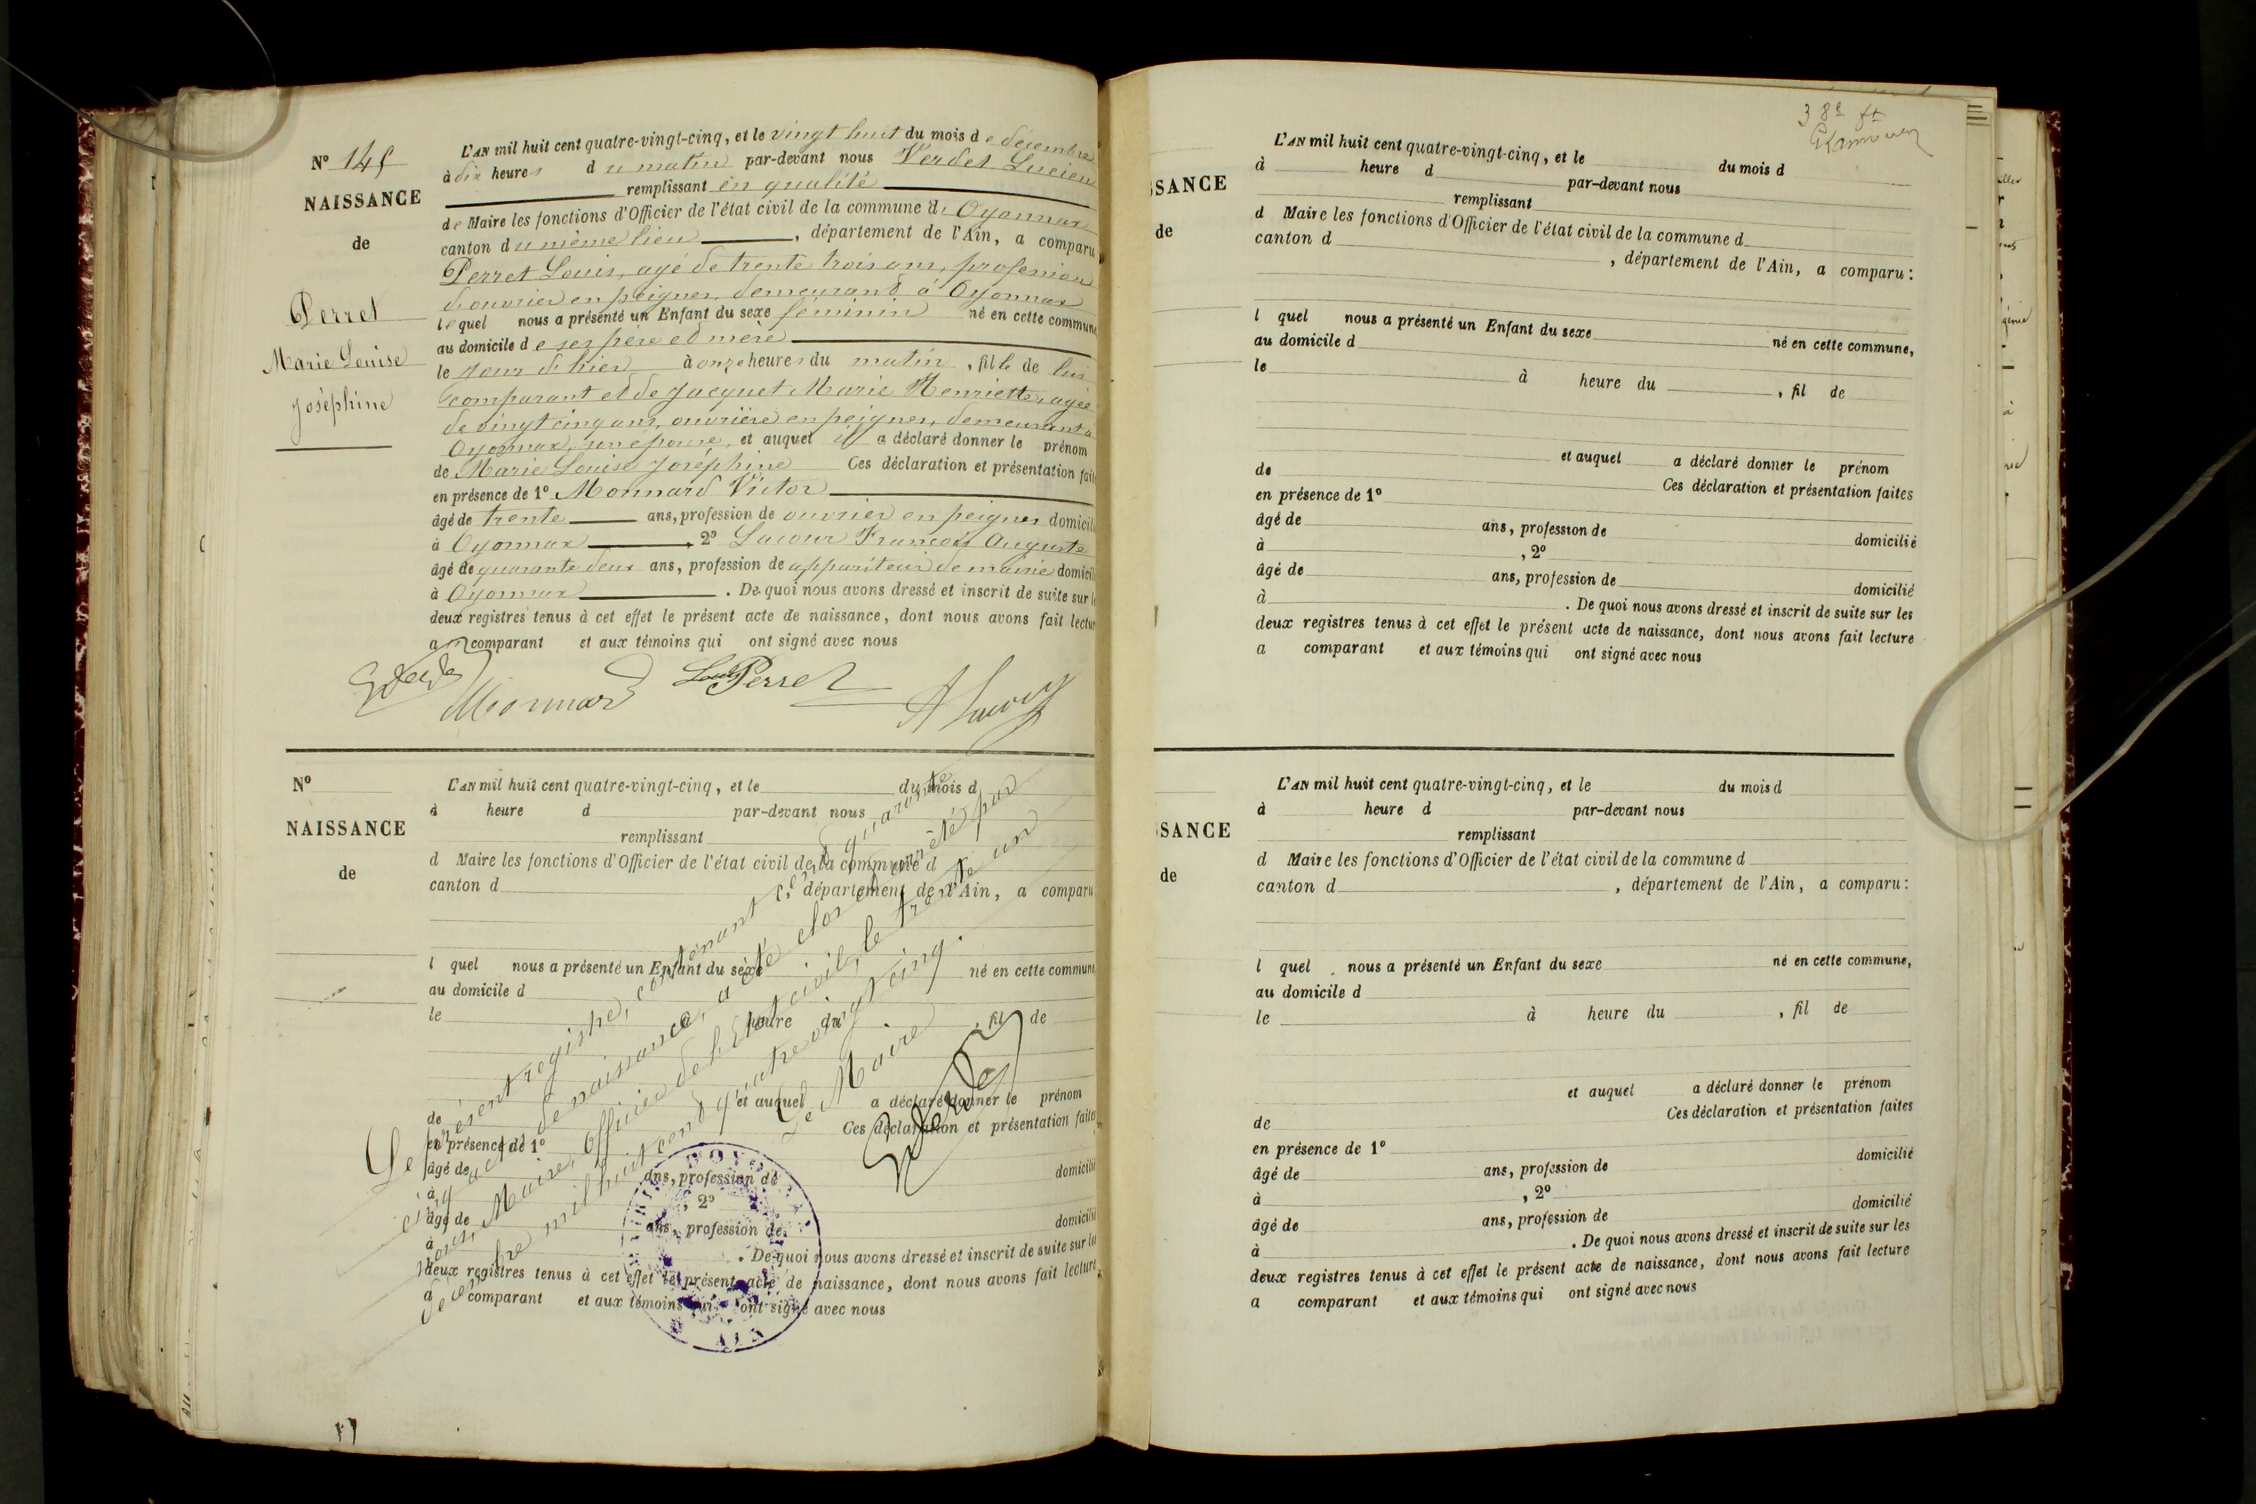 N° 145
NAISSANCE
de
Perret
Marie Louise
Joséphine
L'AN mil huit cent quatre-vingt-cinq, et le vingt huit du mois de décembre
à dix heures du matin par-devant nous Verdet Lucien
remplissant en qualité
de Maire les fonctions d'Officier de l'état civil de la commune d'Oyonnax
canton du même lieu, département de l'Ain, a comparu
Perret Louis, agé de trente trois ans, profession
d'ouvrier en peignes, demeurant à Oyonnax
lequel nous a présenté un Enfant du sexe féminin né en cette commune
au domicile de ses père et mère
le jour d'hier à onze heures du matin, fille de lui
comparant et de Jacquet Marie Henriette, agée
de vingt cinq ans, ouvrière en peignes, demeurant à
Oyonnax, son épouse, et auquel il a déclaré donner le prénom
de Marie Louise Joséphine Ces déclaration et présentation faites
en présence de 1° Monnard Victor
âgé de trente ans, profession de ouvrier en peignes domicilié
à Oyonnax, 2° Lacour François Auguste
âgé de quarante deux ans, profession de appariteur de mairie domicilié
à Oyonnax. De quoi nous avons dressé et inscrit de suite sur le
deux registres tenus à cet effet le présent acte de naissance, dont nous avons fait lecture
a comparant et aux témoins qui ont signé avec nous
Monnard Louis Perret A Lacour
N°
NAISSANCE
de
L'AN mil huit cent quatre-vingt-cinq, et le du mois d
à heure d par-devant nous
remplissant
d Maire les fonctions d'Officier de l'état civil de la commune d
canton d , département de l'Ain, a comparu
l quel nous a présenté un Enfant du sexe né en cette commune
au domicile d
le à heure du , fil de
et auquel a déclaré donner le prénom
de Ces déclaration et présentation faites
en présence de 1°
âgé de ans, profession de domicilié
à , 2°
âgé de ans, profession de domicilié
à . De quoi nous avons dressé et inscrit de suite sur les
deux registres tenus à cet effet le présent acte de naissance, dont nous avons fait lecture
a comparant et aux témoins qui ont signé avec nous
Le présent registre, contenant cent quarante
cinq actes de naissance, a été clos et arrêté par
nous, Maire, Officier de l'Etat civil, le trente un
décembre mil huit cent quatre vingt cinq.
Le Maire
AIN
38e ft
SSANCE
de
L'AN mil huit cent quatre-vingt-cinq, et le du mois d
à heure d par-devant nous
remplissant
d Maire les fonctions d'Officier de l'état civil de la commune d
canton d , département de l'Ain, a comparu:
l quel nous a présenté un Enfant du sexe né en cette commune,
au domicile d
le à heure du , fil de
et auquel a déclaré donner le prénom
de Ces déclaration et présentation faites
en présence de 1°
âgé de ans, profession de domicilié
à , 2°
âgé de ans, profession de domicilié
à . De quoi nous avons dressé et inscrit de suite sur les
deux registres tenus à cet effet le présent acte de naissance, dont nous avons fait lecture
a comparant et aux témoins qui ont signé avec nous
SSANCE
de
L'AN mil huit cent quatre-vingt-cinq, et le du mois d
à heure d par-devant nous
remplissant
d Maire les fonctions d'Officier de l'état civil de la commune d
canton d , département de l'Ain, a comparu:
l quel nous a présenté un Enfant du sexe né en cette commune,
au domicile d
le à heure du , fil de
et auquel a déclaré donner le prénom
de Ces déclaration et présentation faites
en présence de 1°
âgé de ans, profession de domicilié
à , 2°
âgé de ans, profession de domicilié
à . De quoi nous avons dressé et inscrit de suite sur les
deux registres tenus à cet effet le présent acte de naissance, dont nous avons fait lecture
a comparant et aux témoins qui ont signé avec nous